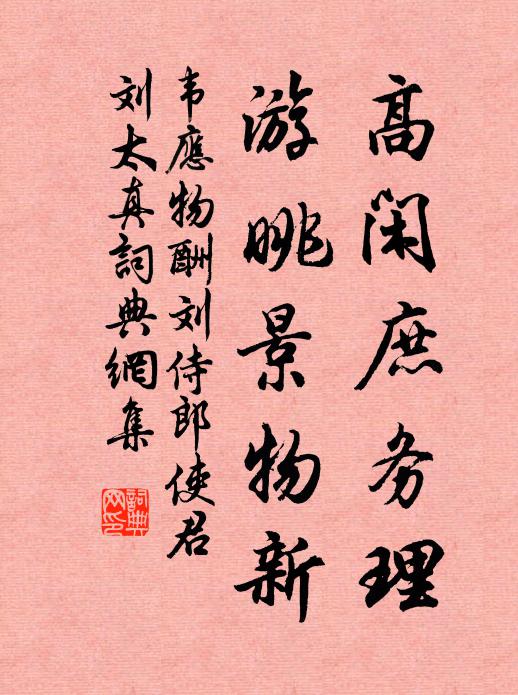 高闲庶务理
游眺景物新
韦應物酬刘侍郎使君
刘太真詞典網集
詞典网印